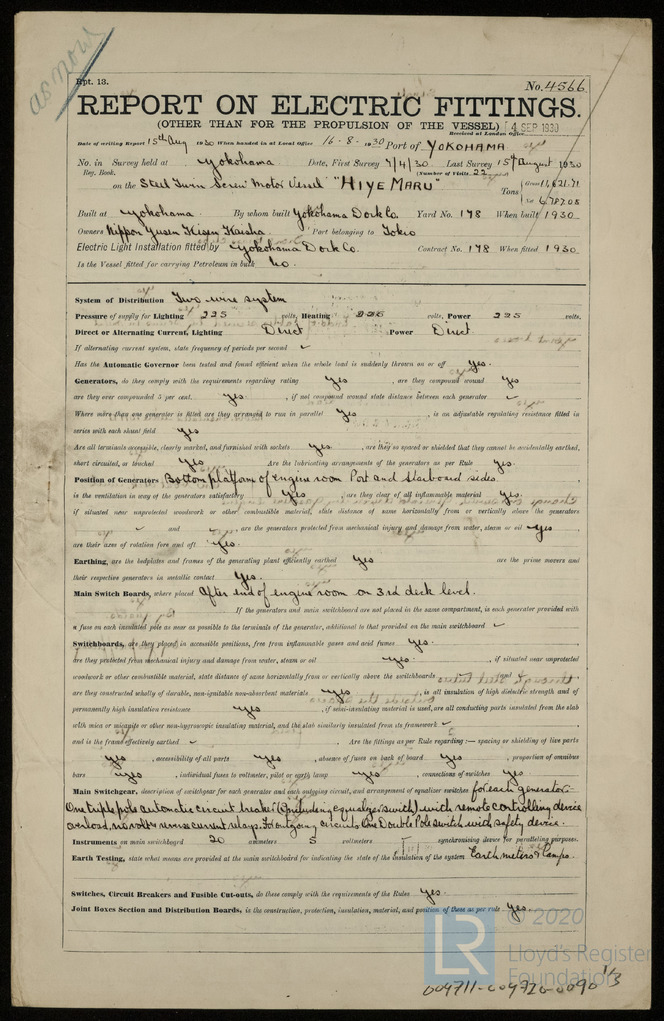 as now
Rpt. 13.
No. 4566
REPORT ON ELECTRIC FITTINGS.
(OTHER THAN FOR THE PROPULSION OF THE VESSEL)
Received at London Office 4 SEP 1930
Date of writing Report 15th Aug 1930 When handed in at Local Office 16-8-1930 Port of YOKOHAMA
No. in Survey held at Yokohama Date, First Survey 7/4/30 Last Survey 15th August 1930
Reg. Book. (Number of Visits 22
on the Steel Twin Screw Motor Vessel "HIYE MARU" Tons Gross 11,621.71
Net 6787.08
Built at Yokohama By whom built Yokohama Dock Co. Yard No. 178 When built 1930
Owners Nippon Yusen Kisen Kaisha Port belonging to Tokio
Electric Light Installation fitted by Yokohama Dock Co. Contract No. 178 When fitted 1930
Is the Vessel fitted for carrying Petroleum in bulk No.
System of Distribution Two wire system
Pressure of supply for Lighting 225 volts, Heating 225 volts, Power 225 volts.
Direct or Alternating Current, Lighting Direct Power Direct
If alternating current system, state frequency of periods per second ✓
Has the Automatic Governor been tested and found efficient when the whole load is suddenly thrown on or off yes.
Generators, do they comply with the requirements regarding rating yes, are they compound wound yes
are they over compounded 5 per cent. yes, if not compound wound state distance between each generator ✓
Where more than one generator is fitted are they arranged to run in parallel yes, is an adjustable regulating resistance fitted in
series with each shunt field yes
Are all terminals accessible, clearly marked, and furnished with sockets yes, are they so spaced or shielded that they cannot be accidentally earthed,
short circuited, or touched yes Are the lubricating arrangements of the generators as per Rule yes.
Position of Generators Bottom platform of engine room Port and starboard sides.
is the ventilation in way of the generators satisfactory yes, are they clear of all inflammable material yes.
if situated near unprotected woodwork or other combustible material, state distance of same horizontally from or vertically above the generators
✓ and ✓, are the generators protected from mechanical injury and damage from water, steam or oil yes
are their axes of rotation fore and aft yes.
Earthing, are the bedplates and frames of the generating plant efficiently earthed yes are the prime movers and
their respective generators in metallic contact yes.
Main Switch Boards, where placed After end of engine room on 3rd deck level.
If the generators and main switchboard are not placed in the same compartment, is each generator provided with
a fuse on each insulated pole as near as possible to the terminals of the generator, additional to that provided on the main switchboard ✓
Switchboards, are they placed in accessible positions, free from inflammable gases and acid fumes yes.
are they protected from mechanical injury and damage from water, steam or oil yes, if situated near unprotected
woodwork or other combustible material, state distance of same horizontally from or vertically above the switchboards and
are they constructed wholly of durable, non-ignitable non-absorbent materials yes, is all insulation of high dielectric strength and of
permanently high insulation resistance yes, if semi-insulating material is used, are all conducting parts insulated from the slab
with mica or micanite or other non-hygroscopic insulating material, and the slab similarly insulated from its framework ✓
and is the frame effectively earthed ✓. Are the fittings as per Rule regarding :— spacing or shielding of live parts
yes, accessibility of all parts yes, absence of fuses on back of board yes, proportion of omnibus
bars yes, individual fuses to voltmeter, pilot or earth lamp yes, connections of switches yes
Main Switchgear, description of switchgear for each generator and each outgoing circuit, and arrangement of equaliser switches for each generator
One triple pole automatic circuit breaker (including equalizer switch) with remote controlling device
overload, no volt & reverse current relays. For outgoing circuits One Double Pole switch with safety device.
Instruments on main switchboard 20 ammeters 5 voltmeters synchronising device for paralleling purposes.
Earth Testing, state what means are provided at the main switchboard for indicating the state of the insulation of the system Earth meters & lamps.
Switches, Circuit Breakers and Fusible Cut-outs, do these comply with the requirements of the Rules yes.
Joint Boxes Section and Distribution Boards, is the construction, protection, insulation, material, and position of these as per rule yes.
© 2020
LR
Lloyd's Register
Foundation
004711-004720-0090 1/3